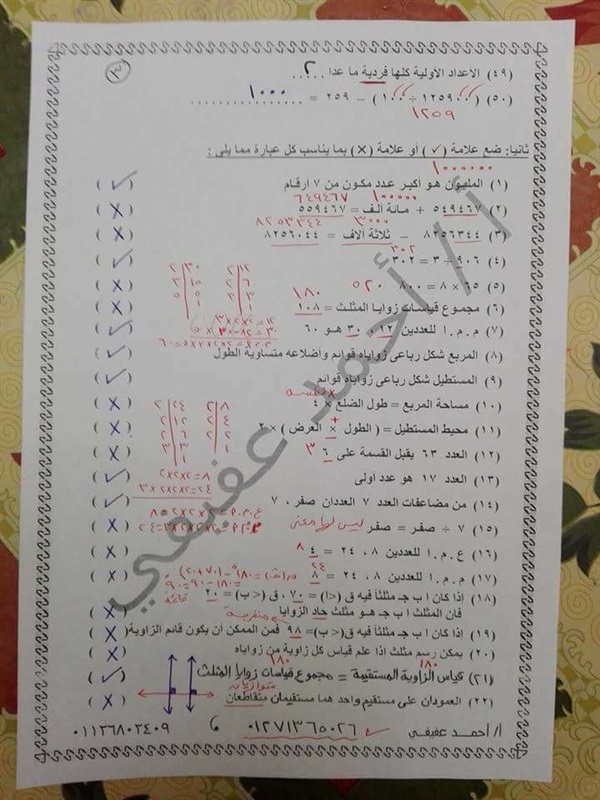 ٣
(٤٩) الاعداد الاولية كلها فردية ما عدا ..٢...
(٥٠) (١٢٥٩٠٠ ÷ ١٠٠) – ٢٥٩ = ١٠٠٠
١٢٥٩
ثانيا: ضع علامة (✓) أو علامة (×) بما يناسب كل عبارة مما يلى :
١٠٠٠٠٠٠
(١) المليون هو أكبر عدد مكون من ٧ أرقام (✓)
٦٤٩٤٦٧ ١٠٠٠٠٠
(٢) ٥٤٩٤٦٧ + مائة ألف = ٥٥٩٤٦٧ (×)
٨٢٥٣٣٤٤ ٣٠٠٠
(٣) ٨٢٥٦٣٤٤ – ثلاثة آلاف = ٨٢٥٦٠٤٤ (×)
٣٠٢
(٤) ٩٠٦ ÷ ٣ = ٣٠٢ (✓)
(٥) ٦٥ × ٨ = ٨٠٠ ٥٢٠ (×)
١٨٠
(٦) مجموع قياسات زوايا المثلث = ١٠٨ (×)
(٧) م . م . ا للعددين ١٢ ، ٣٠ هو ٦٠ (✓)
(٨) المربع شكل رباعى زواياه قوائم وأضلاعه متساوية الطول (✓)
(٩) المستطيل شكل رباعى زواياه قوائم (✓)
(١٠) مساحة المربع = طول الضلع × ٤ (×)
+
(١١) محيط المستطيل = (الطول × العرض) × ٢ (×)
(١٢) العدد ٦٣ يقبل القسمة على ٦ ٣ (×)
(١٣) العدد ١٧ هو عدد أولى (✓)
٢×٢×٢=٨
٣×٢×٢×٢=٢٤
(١٤) من مضاعفات العدد ٧ العددان صفر ، ٧ (✓)
(١٥) ٧ ÷ صفر = صفر ليس لها معنى (×)
(١٦) ع . م . ا للعددين ٨ ، ٢٤ = ٤ ٨ (×)
٢٤
(١٧) م . م . ا للعددين ٨ ، ٢٤ = ٨ (×)
(١٨) إذا كان ا ب جـ مثلثاً فيه ق (<ا) = ٧٠ ، ق (< ب) = ٢٠
فإن المثلث ا ب جـ هو مثلث حاد الزوايا (×)
منفرجة
(١٩) إذا كان ا ب جـ مثلثاً فيه ق (< ب)= ٩٨ فمن الممكن أن يكون قائم الزاوية (×)
(٢٠) يمكن رسم مثلث إذا علم قياس كل زاوية من زواياه (×)
١٨٠ ١٨٠
(٢١) قياس الزاوية المستقيمة = مجموع قياسات زوايا المثلث (✓)
متوازيان
(٢٢) العمودان على مستقيم واحد هما مستقيمان متقاطعان (×)
أ/ أحمد عفيفى ٠١٢٧١٣٦٥٠٢٦ ٠١١٢٦٨٠٢٤٠٩
أ/ أحمد عفيفي